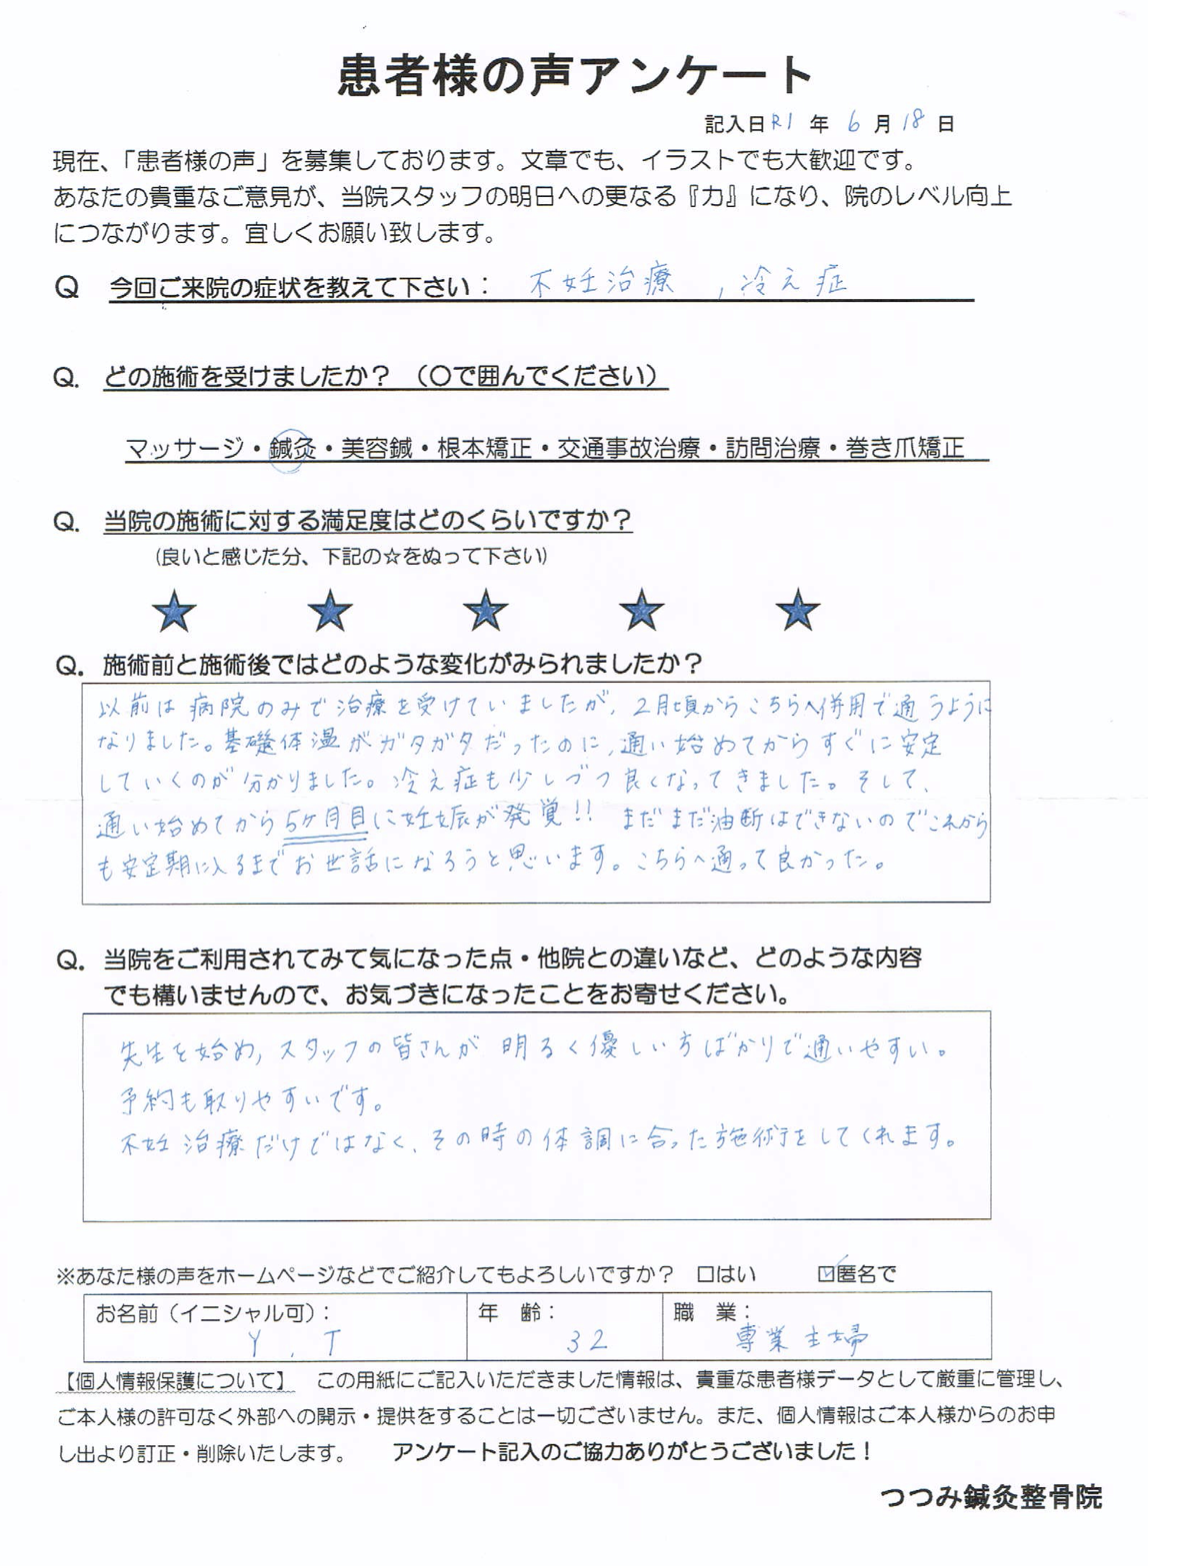 患者様の声アンケート
記入日R1 年 6 月 18 日
現在、「患者様の声」を募集しております。文章でも、イラストでも大歓迎です。
あなたの貴重なご意見が、当院スタッフの明日への更なる『力』になり、院のレベル向上
につながります。宜しくお願い致します。
Q 今回ご来院の症状を教えて下さい: 不妊治療 , 冷え症
Q. どの施術を受けましたか? (〇で囲んでください)
マッサージ・鍼灸・美容鍼・根本矯正・交通事故治療・訪問治療・巻き爪矯正
Q. 当院の施術に対する満足度はどのくらいですか?
(良いと感じた分、下記の☆をぬって下さい)
★ ★ ★ ★ ★
Q. 施術前と施術後ではどのような変化がみられましたか?
以前は病院のみで治療を受けていましたが、2月頃からこちらへ併用で通うように
なりました。基礎体温がガタガタだったのに、通い始めてからすぐに安定
していくのが分かりました。冷え症も少しづつ良くなってきました。そして、
通い始めてから5ヶ月目に妊娠が発覚!! まだまだ油断はできないのでこれから
も安定期に入るまでお世話になろうと思います。こちらへ通って良かった。
Q. 当院をご利用されてみて気になった点・他院との違いなど、どのような内容
でも構いませんので、お気づきになったことをお寄せください。
先生を始め,スタッフの皆さんが明るく優しい方ばかりで通いやすい。
予約も取りやすいです。
不妊治療だけではなく、その時の体調に合った施術をしてくれます。
※あなた様の声をホームページなどでご紹介してもよろしいですか? □はい ☑匿名で
お名前(イニシャル可): 年 齢: 職 業:
Y . T 32 専業主婦
【個人情報保護について】 この用紙にご記入いただきました情報は、貴重な患者様データとして厳重に管理し、
ご本人様の許可なく外部への開示・提供をすることは一切ございません。また、個人情報はご本人様からのお申
し出より訂正・削除いたします。 アンケート記入のご協力ありがとうございました!
つつみ鍼灸整骨院